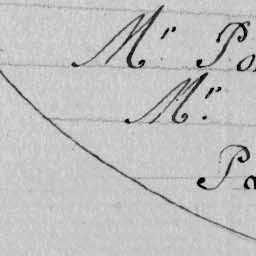 Mr. Po
Mr.
Pa